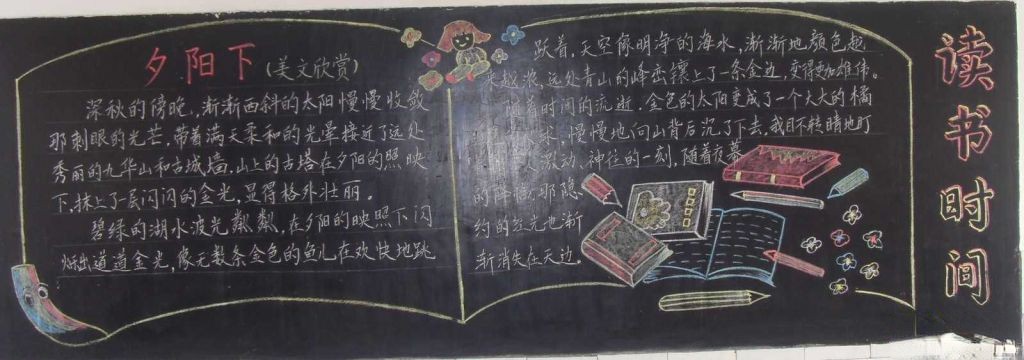 夕阳下(美文欣赏)
深秋的傍晚,渐渐西斜的太阳慢慢收敛
那刺眼的光芒,带着满天柔和的光晕接近了远处
秀丽的九华山和古城墙,山上的古塔在夕阳的照映
下,抹上了层闪闪的金光,显得格外壮丽。
碧绿的湖水波光粼粼,在夕阳的映照下闪
烁出道道金光,像无数条金色的鱼儿在欢快地跳
跃着,天空像明净的海水,渐渐地颜色越
来越浓,远处青山的峰峦镶上了一条金边,变得更加雄伟。
随着时间的流逝,金色的太阳变成了一个大大的橘
慢慢地向山背后沉了下去,我目不转睛地盯
激动、神往的一刻,随着夜幕
的降临,那隐
约的
光也渐
渐消失在天边。
读书时间